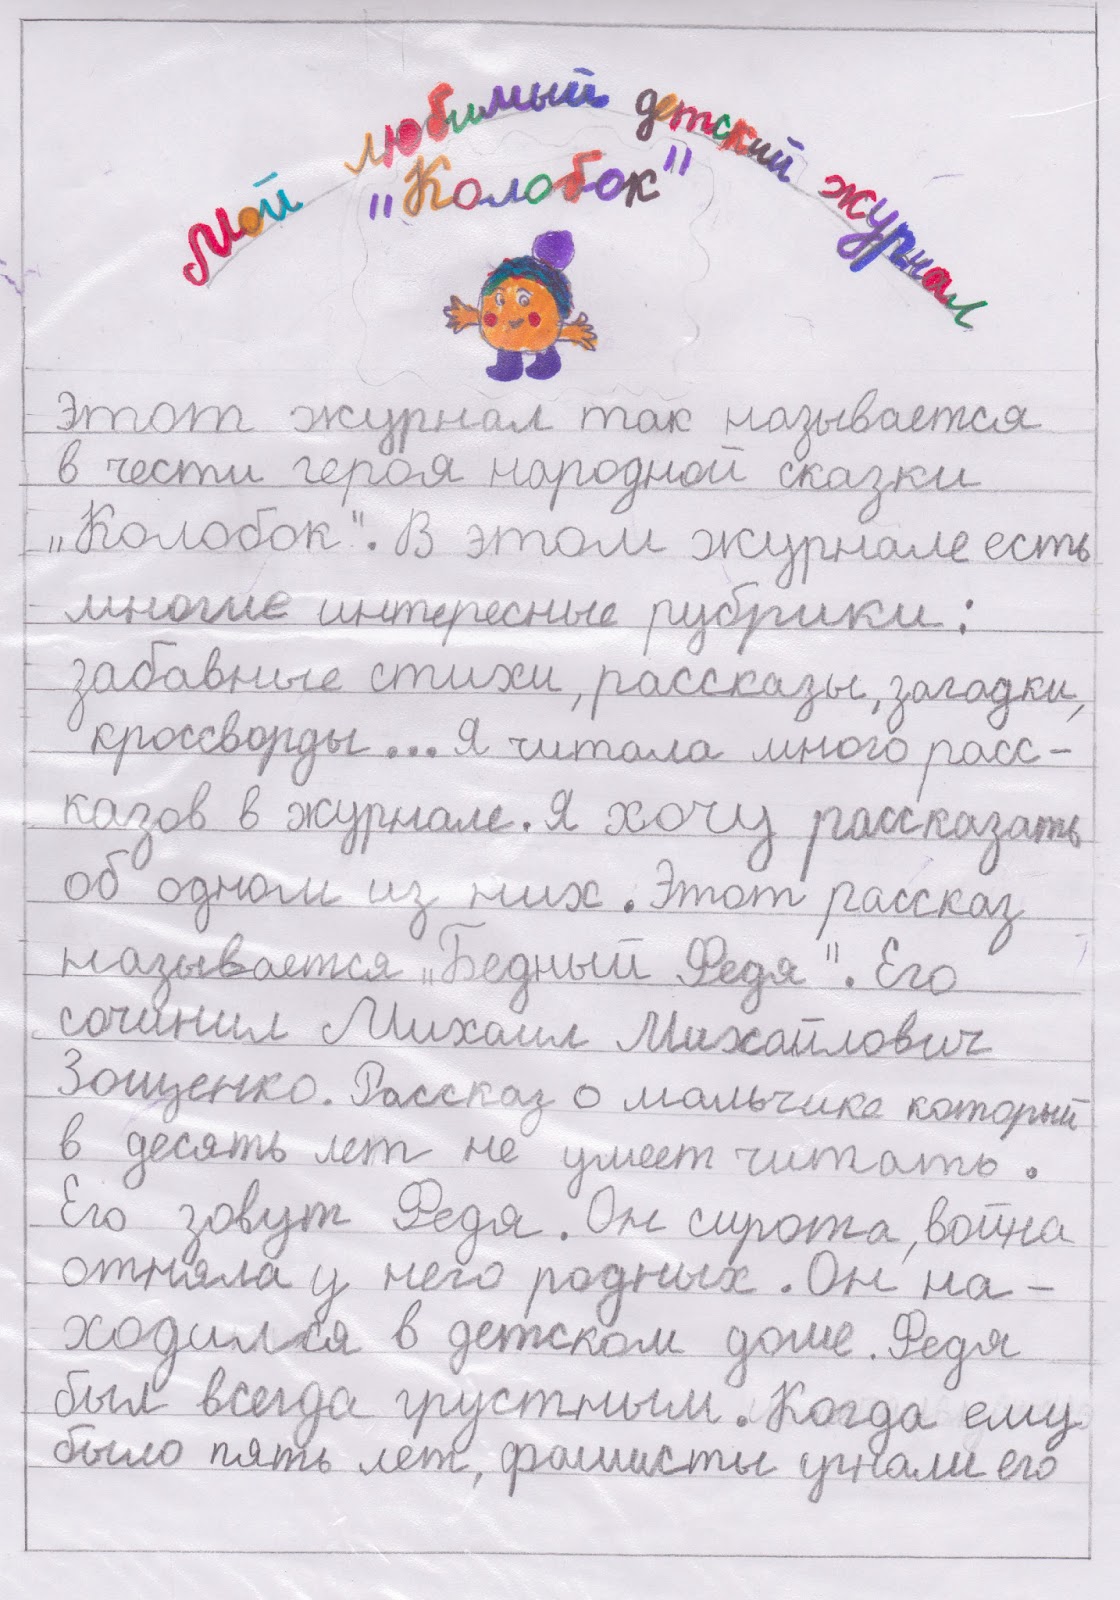 Мой любимый детский журнал
"Колобок"
Этот журнал так называется
в чести героя народной сказки
„Колобок". В этом журнале есть
многие интересные рубрики:
забавные стихи, рассказы, загадки,
кроссворды... Я читала много расс-
казов в журнале. Я хочу рассказать
об одном из них. Этот рассказ
называется „Бедный Федя". Его
сочинил Михаил Михайлович
Зощенко. Рассказ о мальчике который
в десять лет не умеет читать.
Его зовут Федя. Он сирота, война
отняла у него родных. Он на-
ходился в детском доме. Федя
был всегда грустным. Когда ему
было пять лет, фашисты угнали его